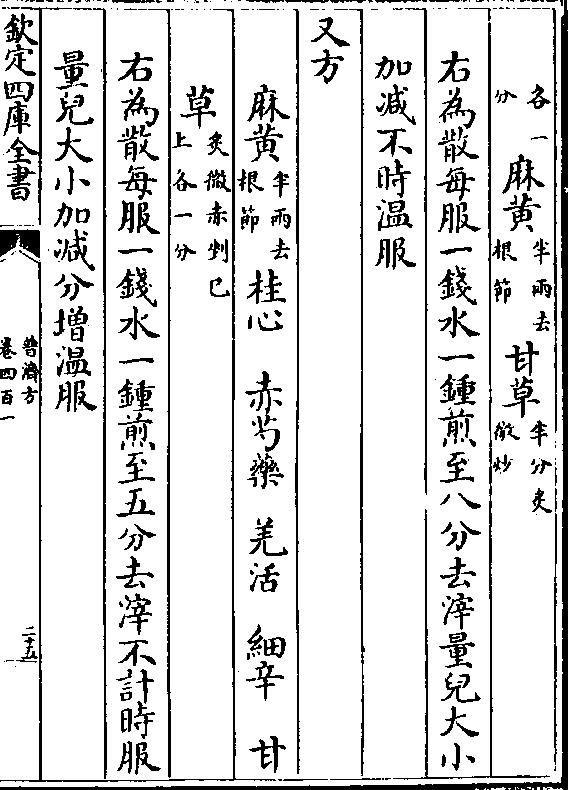 各一分麻黄半兩去根節甘草半分炙微炒
右為散每服一錢水一鍾煎至八分去滓量兒大小
加減不時温服
又方
麻黄半兩去根節桂心 赤芍藥 羌活 細辛 甘
草炙微赤剉已上各一分
右為散每服一錢水一鍾煎至五分去滓不計時服
量兒大小加減分増温服
欽定四庫全書
普濟方
卷四百一
二十五